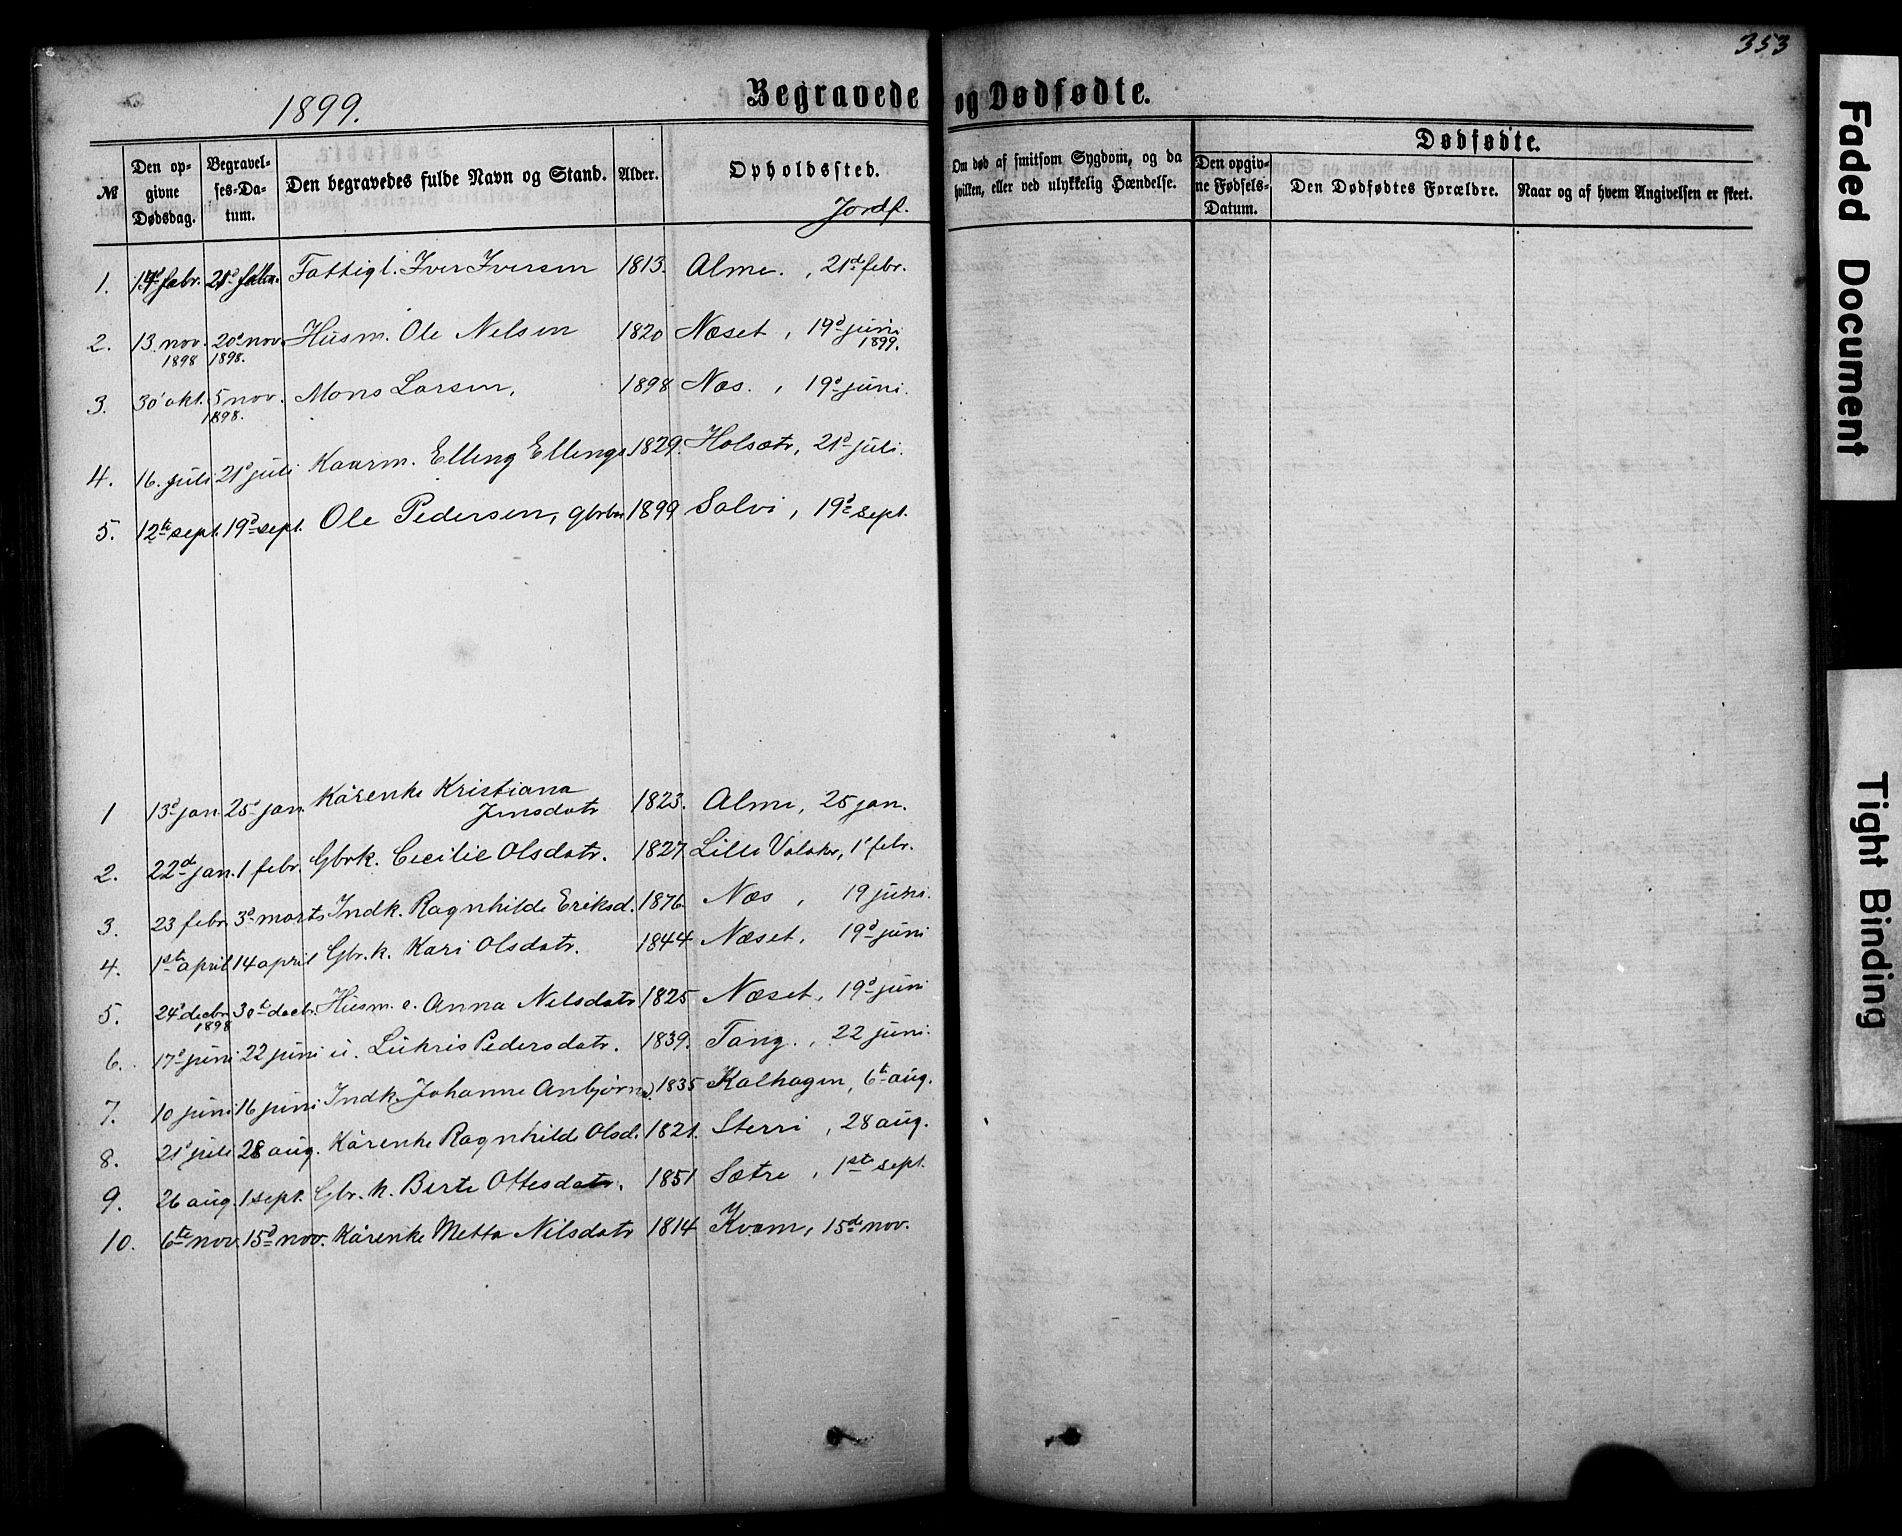 353
1899.
Begravede og Dødfødte.
№
Den opgivne Dødsdag.
Begravelses-Datum.
Den begravedes fulde Navn og Stand.
Alder.
Opholdssted.
Jordf.
Om død af smitsom Sygdom, og da hvilken, eller ved ulykkelig Hændelse.
Dødfødte.
Den opgivne Fødsels-Datum.
Den Dødfødtes Forældre.
Naar og af hvem Angivelsen er skeet.
1. 14d febr. 21d febr. Fattigl. Iver Iversen 1813. Alme. , 21d febr.
2. 13 nov. 1898 20d nov. 1898. Husm. Ole Nelsen 1820 Næset , 19d juni 1899.
3. 30 okt. 5 nov. 1898. Mons Larsen, 1898 Næs. , 19d juni.
4. 16. juli 21d juli Kaarm. Elling Ellings 1829. Holsætr, 21d juli.
5. 12te sept. 19d sept. Ole Pedersen, gbrbn 1899 Solvi , 19d sept.
1 13d jan 25d jan. Kårenke Kristiana
Jensdatr 1823. Alme, 25 jan.
2. 22d jan. 1 febr. Gbrk. Cecilie Olsdatr. 1827 Lille Valaker, 1' febr.
3. 23 febr. 3d marts Indk. Ragnhilde Eriksd. 1876 Næs , 19 juni.
4. 1ste april 14 april Gbr.k. Kari Olsdatr. 1844 Næset, 19d juni
5. 24d decbr. 1898 30te decbr. Husm. e. Anna Nilsdatr 1825 Næset, 19d juni
6. 17d juni 22 juni u. Lukris Pedersdatr. 1839. Tang. , 22 juni.
7. 10 juni 16 juni Indk. Johanne Anbjørns). 1835 Kalhagen, 6te aug.
8. 21d juli 28 aug. Kårenke Ragnhilde Olsd. 1821. Sterri , 28 aug.
9. 26 aug. 1 sept. Gbr.k. Berte Ottesdatr. 1851 Sætre , 1ste sept.
10. 6te nov. 15d nov. Kårenke Metta Nilsdatr 1814 Kvam, 15de nov.
Faded Document
Tight Binding